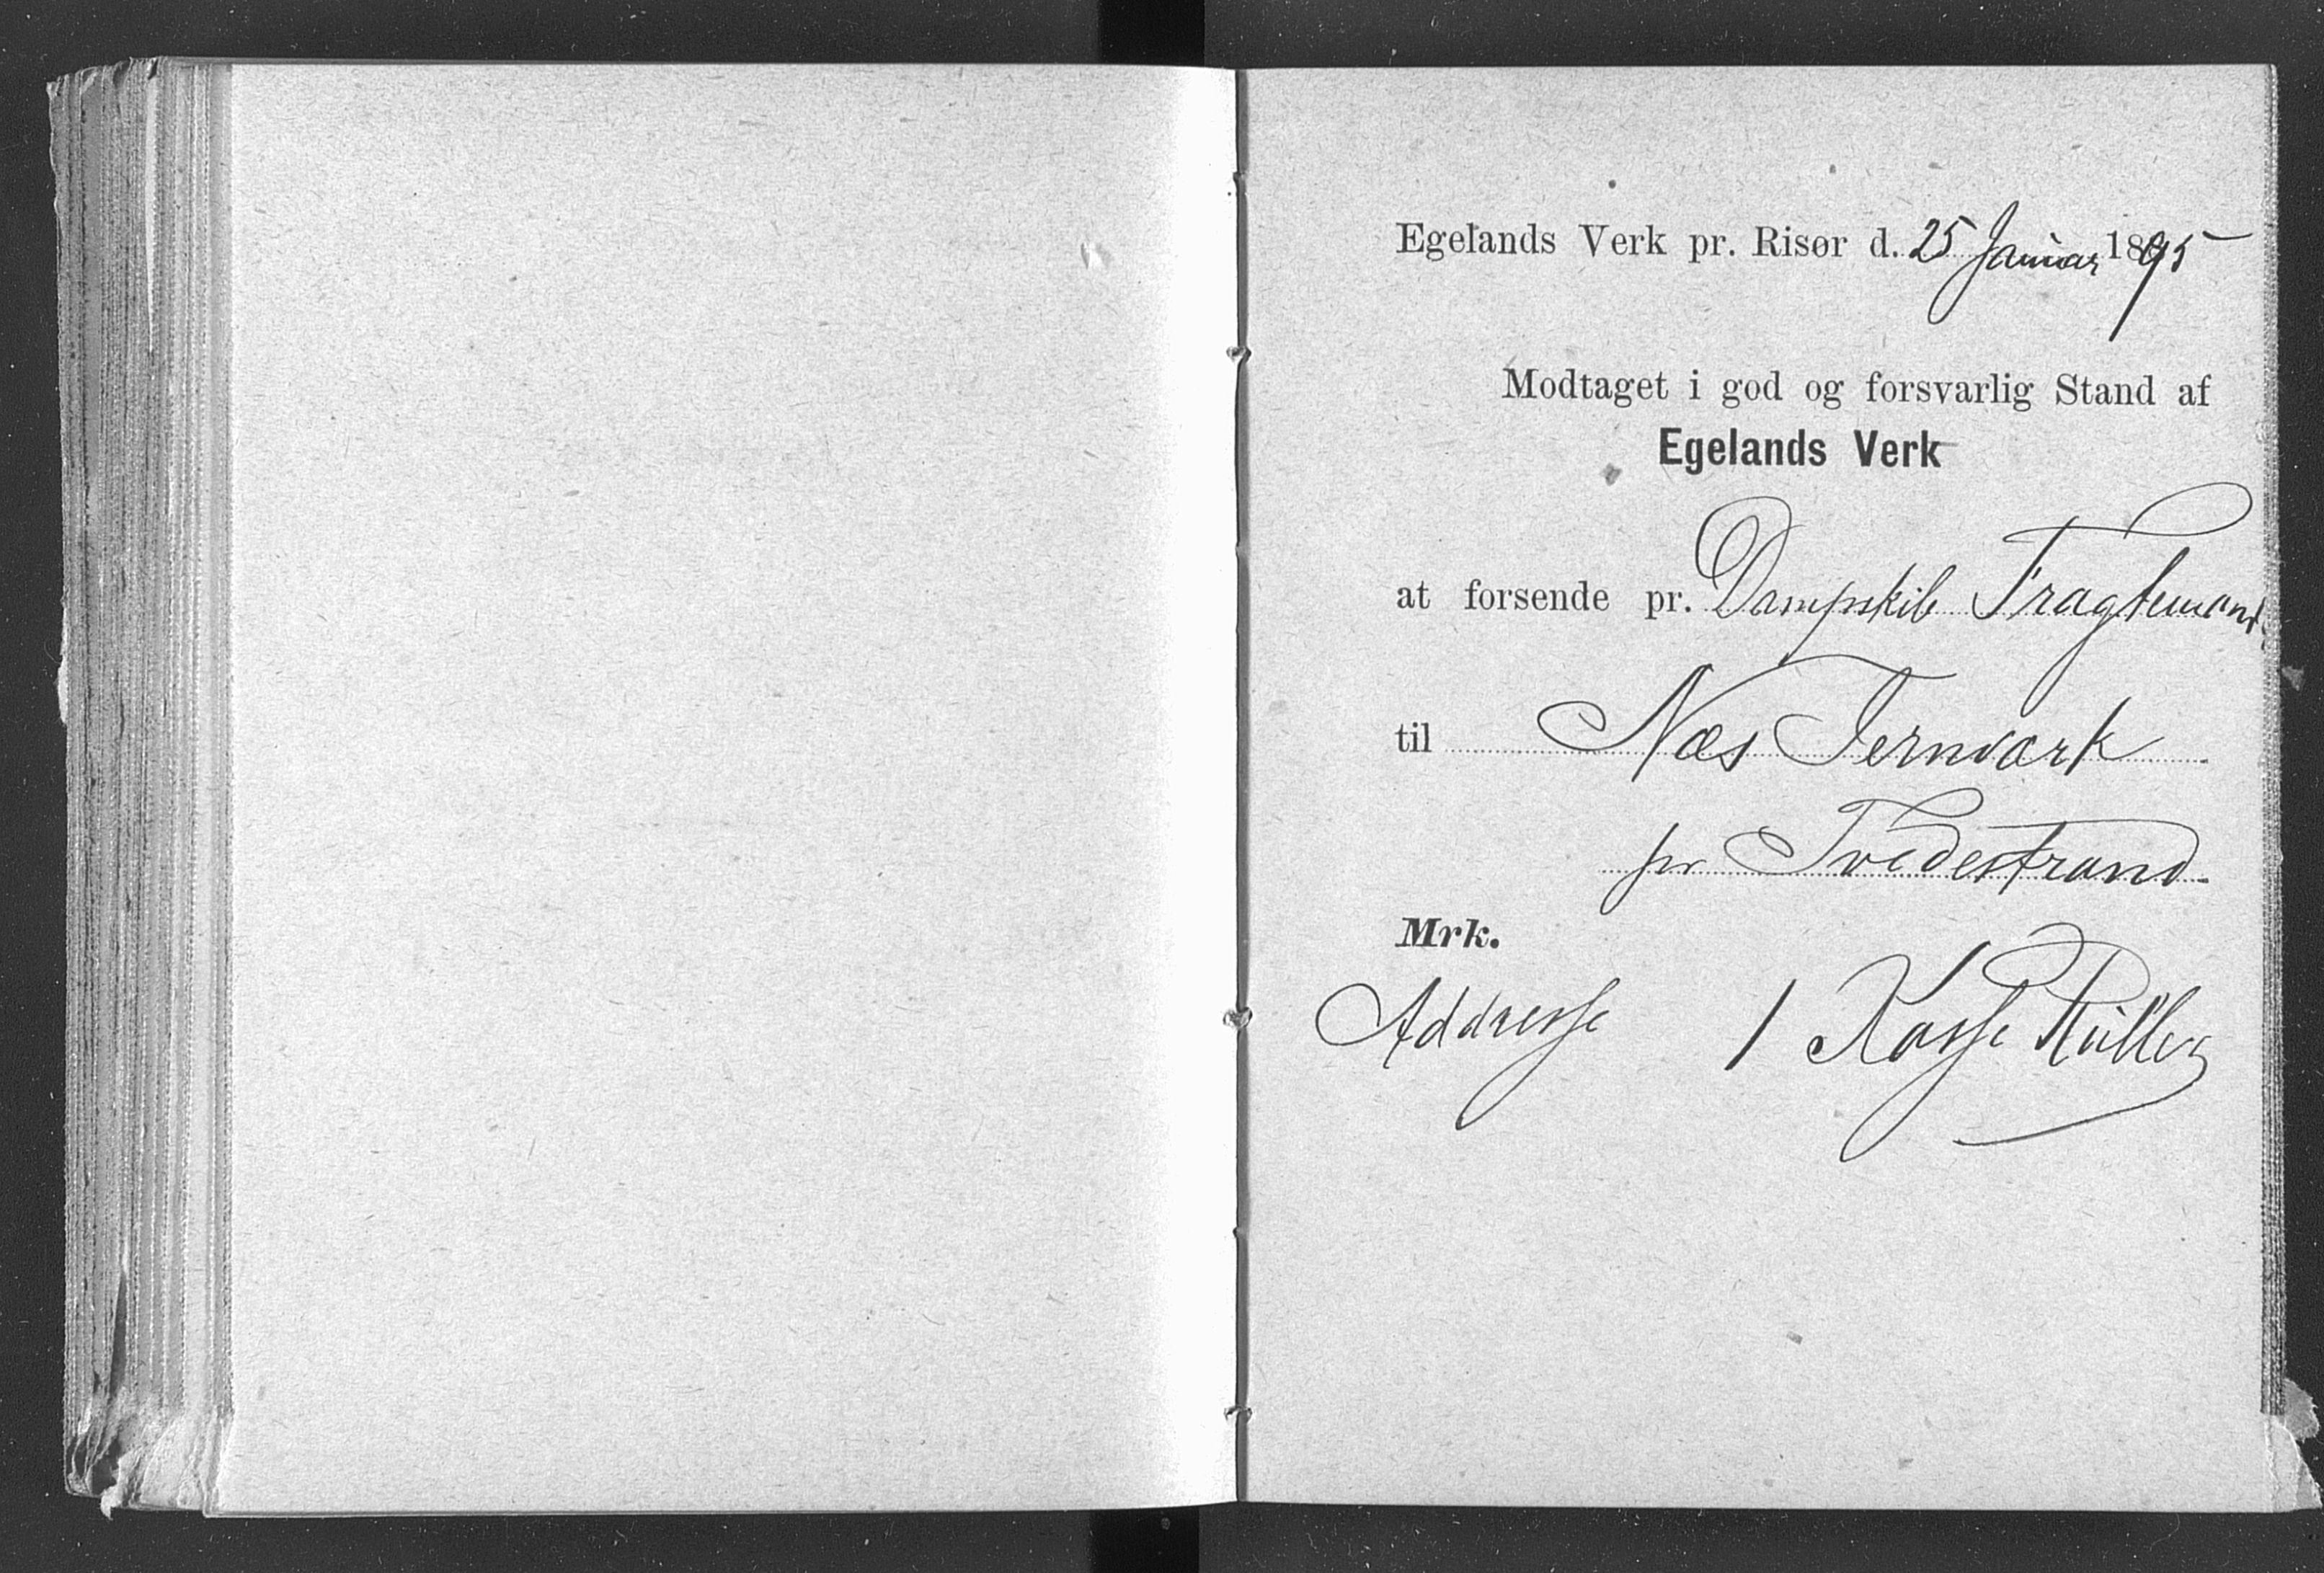 Egelands Verk pr. Risør d. 25 Januar 1895
Modtaget i god og forsvarlig Stand af
Egelands Verk
at forsende pr. Dampskib Fragtemand
til Næs Jernværk
pr Tvedestrand
Mrk.
Addresse 1 Kasse Ruller